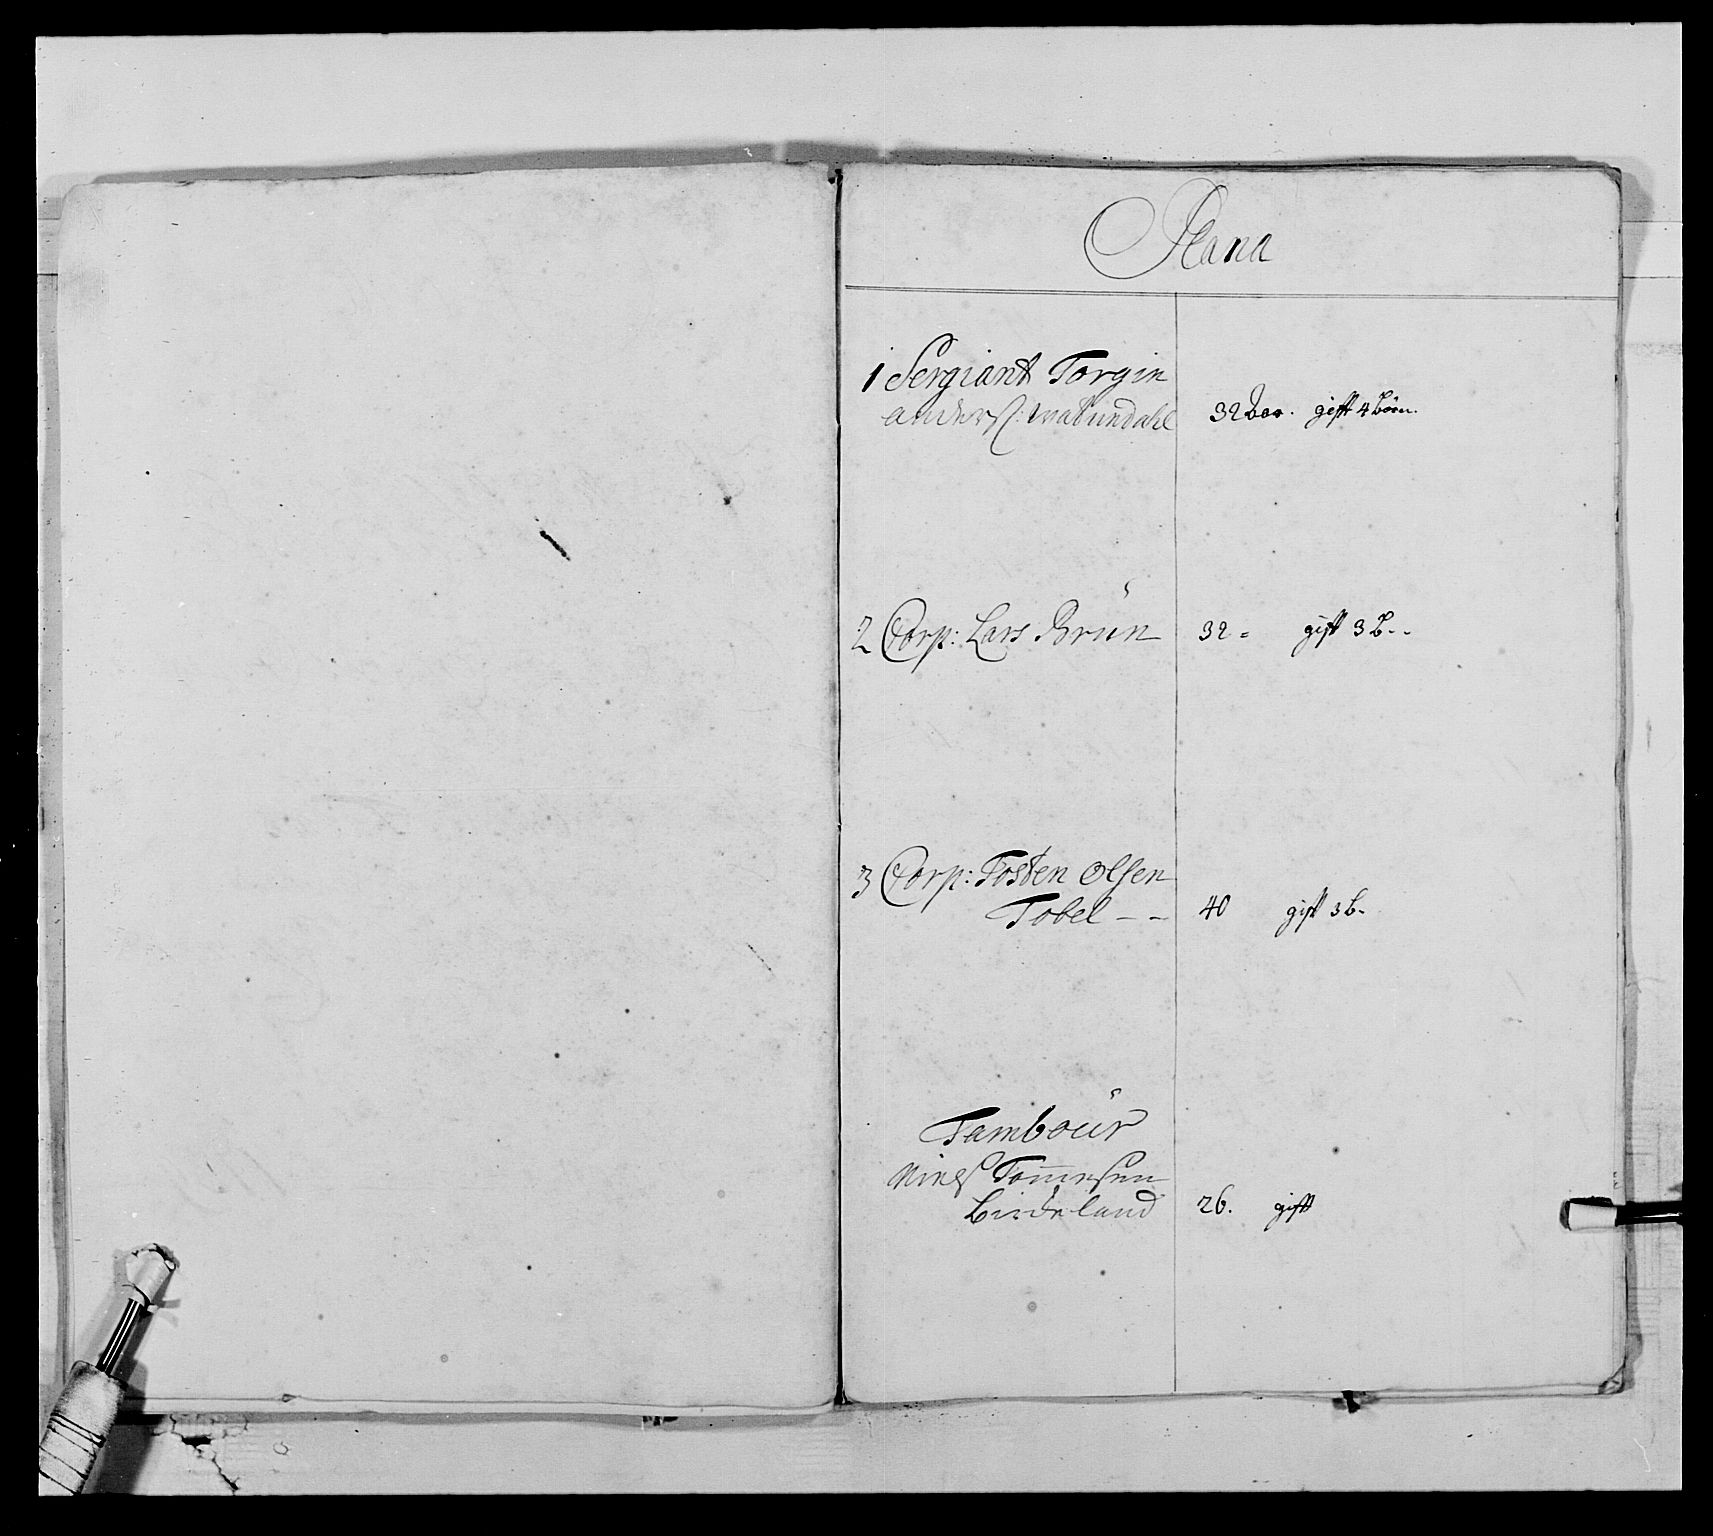 Plana
1 Sergiant Torgin
anders: Watundahl 32 Aar. gifft 4 börn.
2 Corp: Lars Brün 32 = gift 3 b--
3 Corp: Tosten Olsen
Tobel - - 40 gift 3 b-
Tambour
Niels Tommesen
Birkeland 26. gift